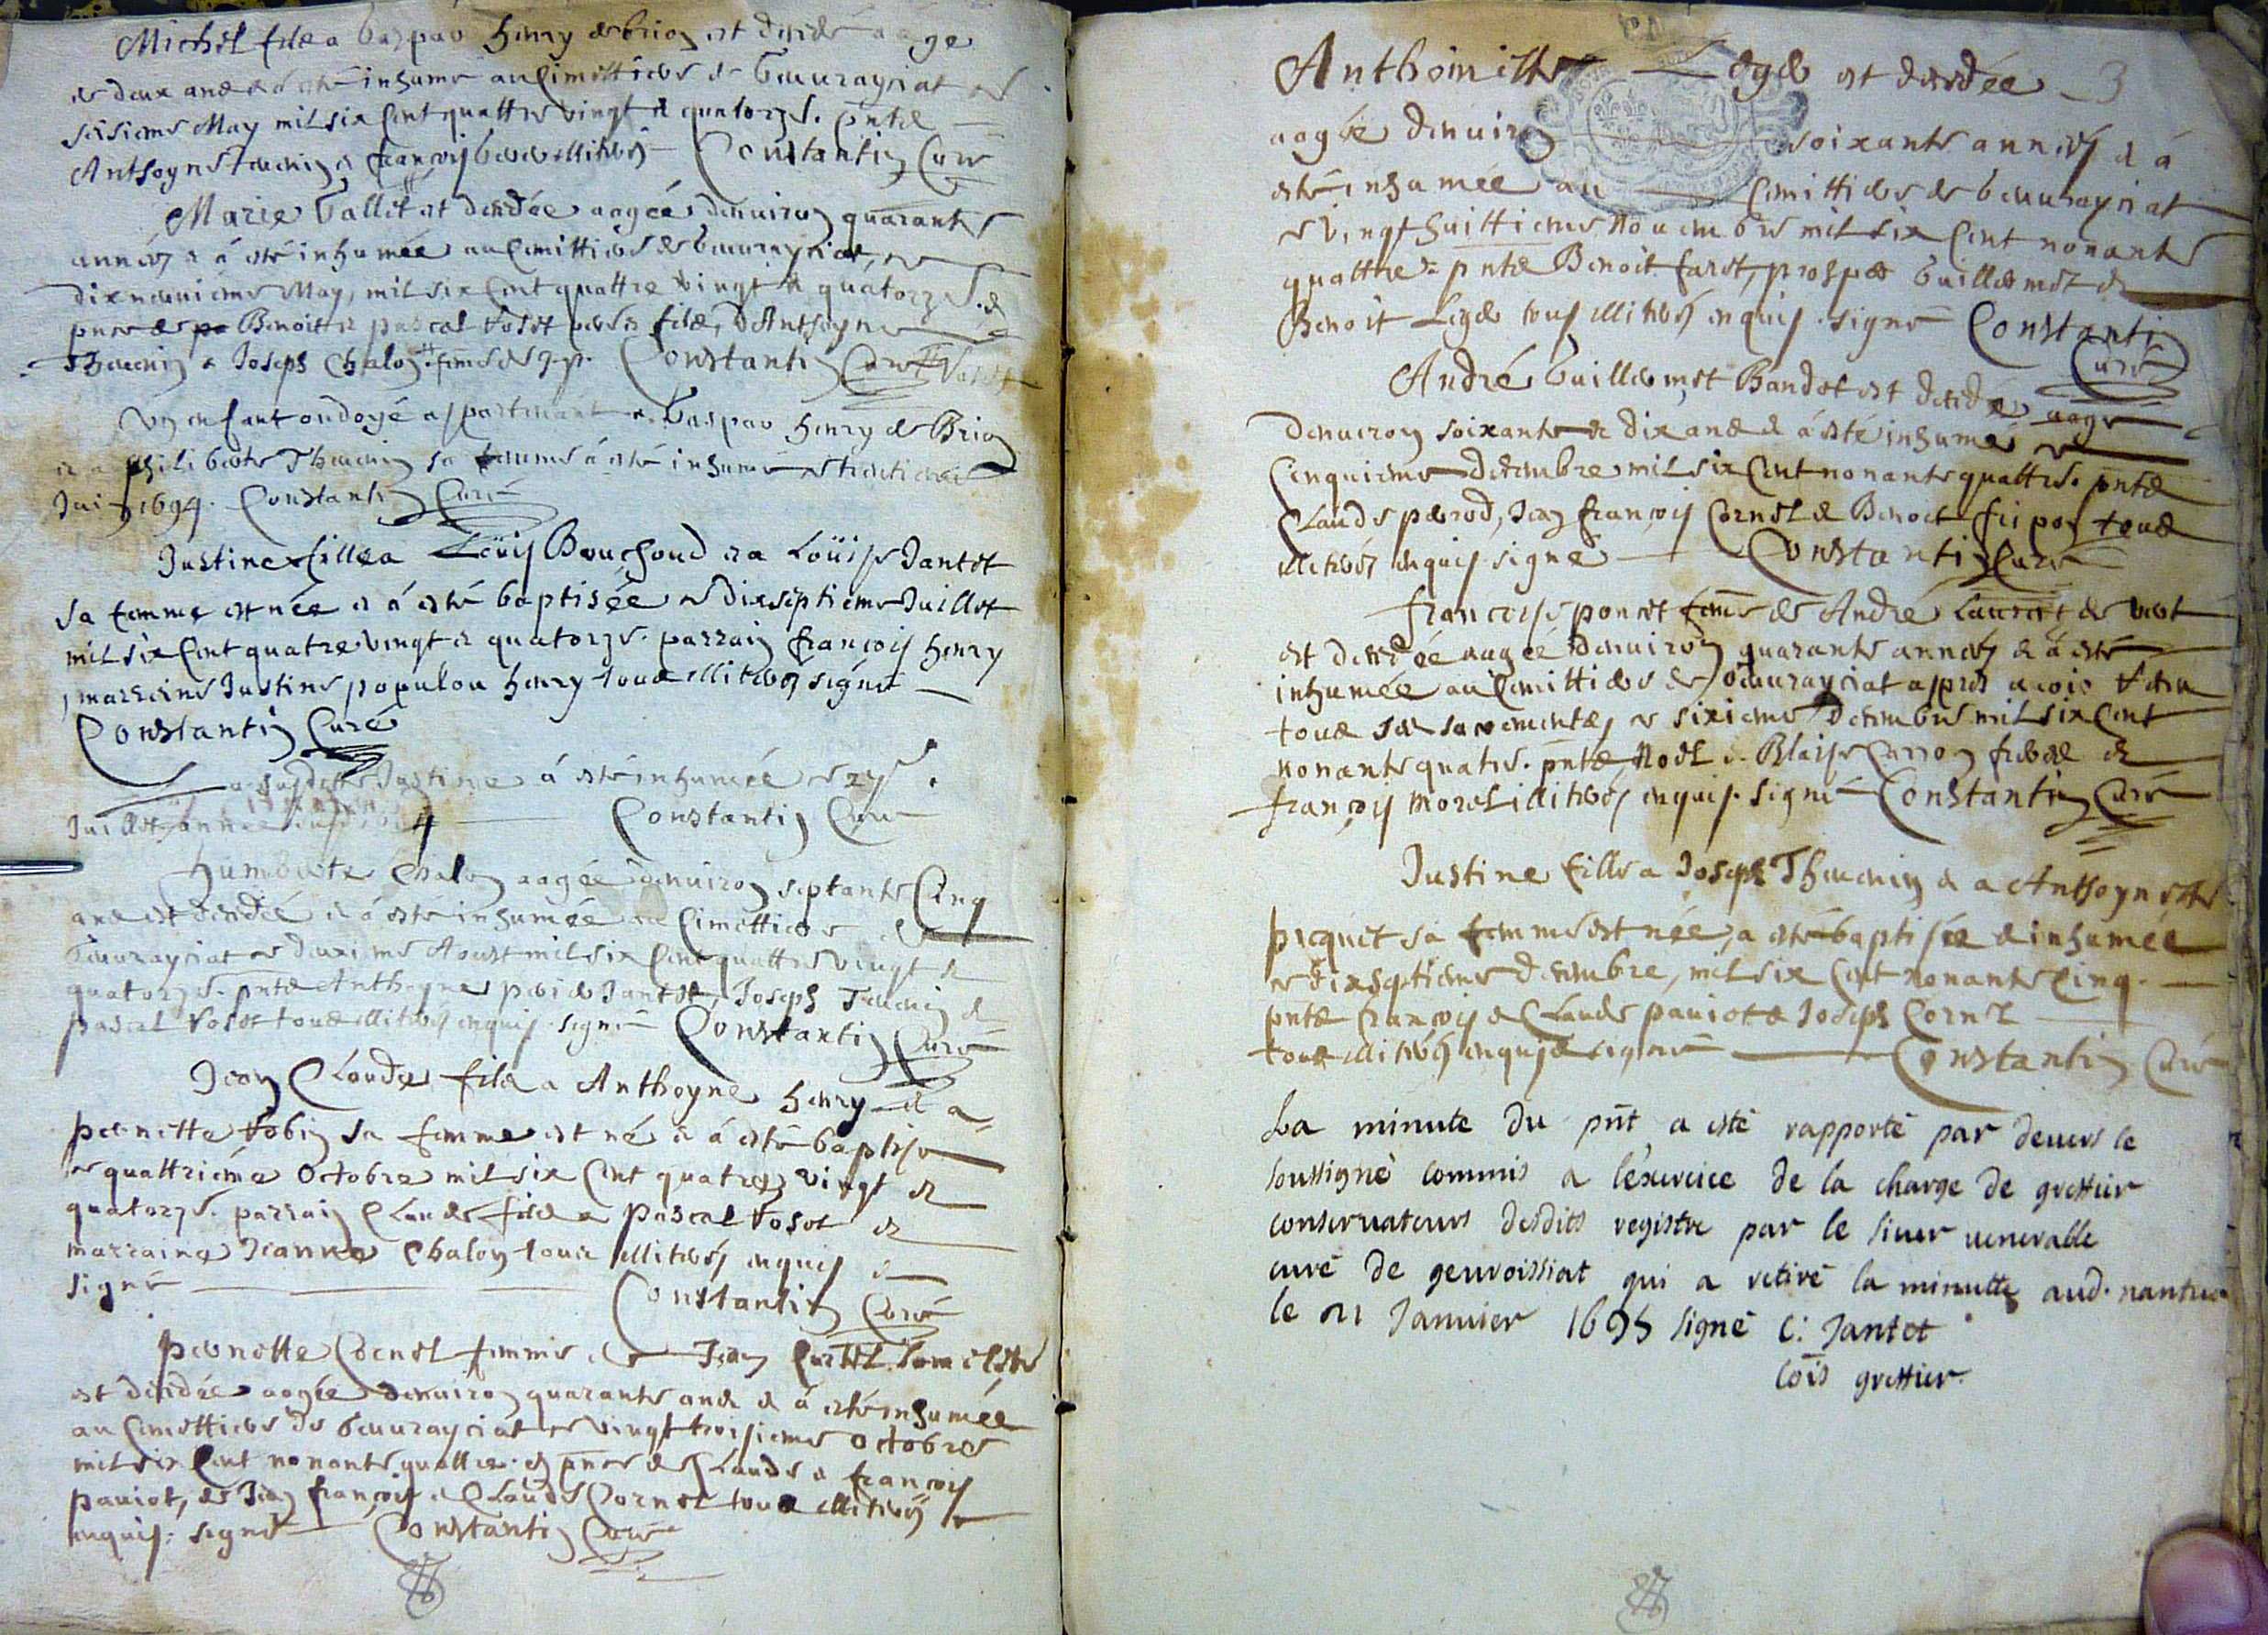 Michel filz a Gaspar henry de brion est decedé aagé
de deux ans et a esté inhumé au Cimittiere de Geurayciat le
seisieme May mil six Cent quattre vingt et quatorze. pntz
Anthoyne Thevenin et françois illiterés Constantin Curé
Marie Gallet est decedée aagée denuiron quarante
années et a esté inhumée au Cimittiere de Geurayciat, le
dixneuuieme May, mil six Cent quattre vingt et quatorze. et
pnce de Benoit et pascal Vosot pere et filz, d'Anthoyne
Thevenin et Joseph Chalon Constantin Curé
Un enfant ondoyé appartenant a Gaspar henry de Brion
et a philiberte Thevenin sa femme a esté inhumé le
Juin 1694. Constantin Curé
Justine fille a Loüis Bouchoud et a Loüise Jantet
sa femme est née et a esté baptisée le dixseptieme Juillet
mil six Cent quatre vingt et quatorze. parrain françois henry
marraine Justine populou henry touz illiterés signé
Constantin Curé
La susditte Justine a esté inhumée le
Juillet année susditte Constantin Curé
humberte Chalon aagée denuiron septante Cinq
ans est decedée et a esté inhumée au Cimittiere de
Geurayciat le deuxieme Aoust mil six Cent quattre vingt et
quatorze. pntz Anthoyne Jantet, Joseph Thevenin et
pascal Vosot touz illiterés enquis. signé Constantin Curé
Jean Claude filz a Anthoyne henry et a
pernette Gobin sa femme est né et a esté baptisé
le quattriéme Octobre mil six Cent quatre vingt et
quatorze. parrain Claude filz a pascal Vosot et
marraine Jeanne Chalon touz illiterés enquis et
signé Constantin Curé
pernette Cornet femme de Jean
est decedée aagée denuiron quarante ans et a esté inhumée
au Cimittiere de Geurayciat le vingt troisieme octobre
mil six Cent nonante quattre. en pnce de Claude et françois
pauiot, de Jean françois et Claude Cornet touz illiterés
enquis. signé Constantin Curé
Anthoinette Leger est decedée 3
aagée denuiron soixante années et a
esté inhumée au Cimittiere de Geurayciat
le vingt huittieme nouembre mil six Cent nonante
quattre. pntz Benoit faret, prosper Guillermet et
Benoit Leger tous illiterés enquis. signé Constantin
Curé
André Guillermet Bandet est decedé aagé
denuiron soixante et dix ans et a esté inhumé le
Cinquieme decembre mil six Cent nonante quattre. pntz
Claude perrod, Jean françois Cornet et Benoit touz
illiterés enquis signé Constantin Curé
françoise poncet feme de André Laurent de
est decedée aagée denuiron quarante années et a esté
inhumée au Cimittiere de Geurayciat apres auoir receu
touz ses sacrementz, le sixieme decembre mil six Cent
nonante quatre. pntz, Noël et Blaise Carron freres et
françois morel illiterés enquis. signé Constantin Curé
Justine fille a Joseph Thevenin et a Anthoynette
picquet sa femme est née, a esté baptisée et inhumée
le dixseptieme decembre, mil six Cent nonante Cinq.
pntz françois et Claude pauiot et Joseph Cornet
touz illiterés enquis et signé Constantin Curé
La minute du pnt a esté rapporté par deuers le
soussigné commis a lexercice de la charge de greffier
conseruateurs desdits registre par le sieur venerable
curé de geuroissiat qui a retiré la minutte aud. nantua
le 21 Januier 1695 signé C. Jantet
Cois greffier.